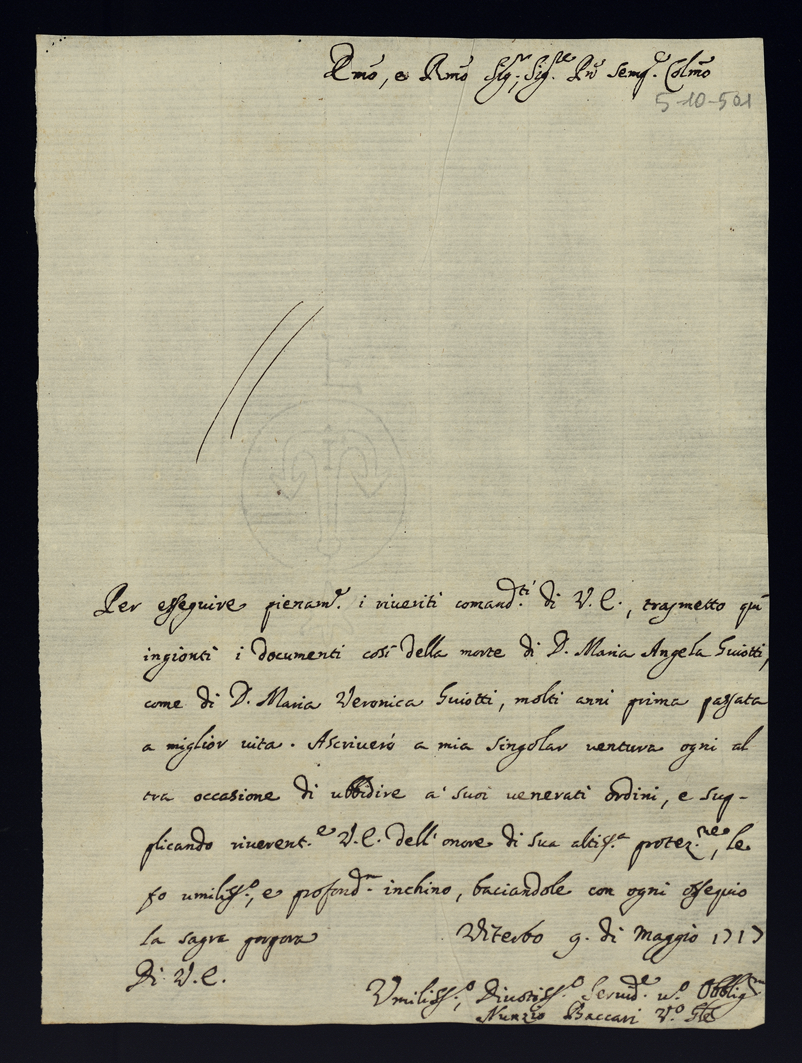 Emo, e Rmo Sigr, Sigre Pn̄ semp.e Colmo
5-10-501
Per esseguire pienam.e i riueriti comand.ti di V. E., trasmetto quì
ingionti i documenti così della morte di D. Maria Angela Guiotti,
come di D. Maria Veronica Guiotti, molti anni prima passata
a miglior uita. Ascriuerò a mia singolar uentura ogni al
tra occasione di ubbidire a' suoi uenerati ordini, e sup-
plicando riuerent.e V. E. dell'onore di sua altiss.a protez.ne, le
fo umiliss.o, e profond.m inchino, baciandole con ogni ossequio
la sagra porpora Viterbo 9. di Maggio 1717
Di V. E.
Vmiliss.o, Diuotiss.o Seruid.e u.o Obblig.m
Nunzio Baccari V.o